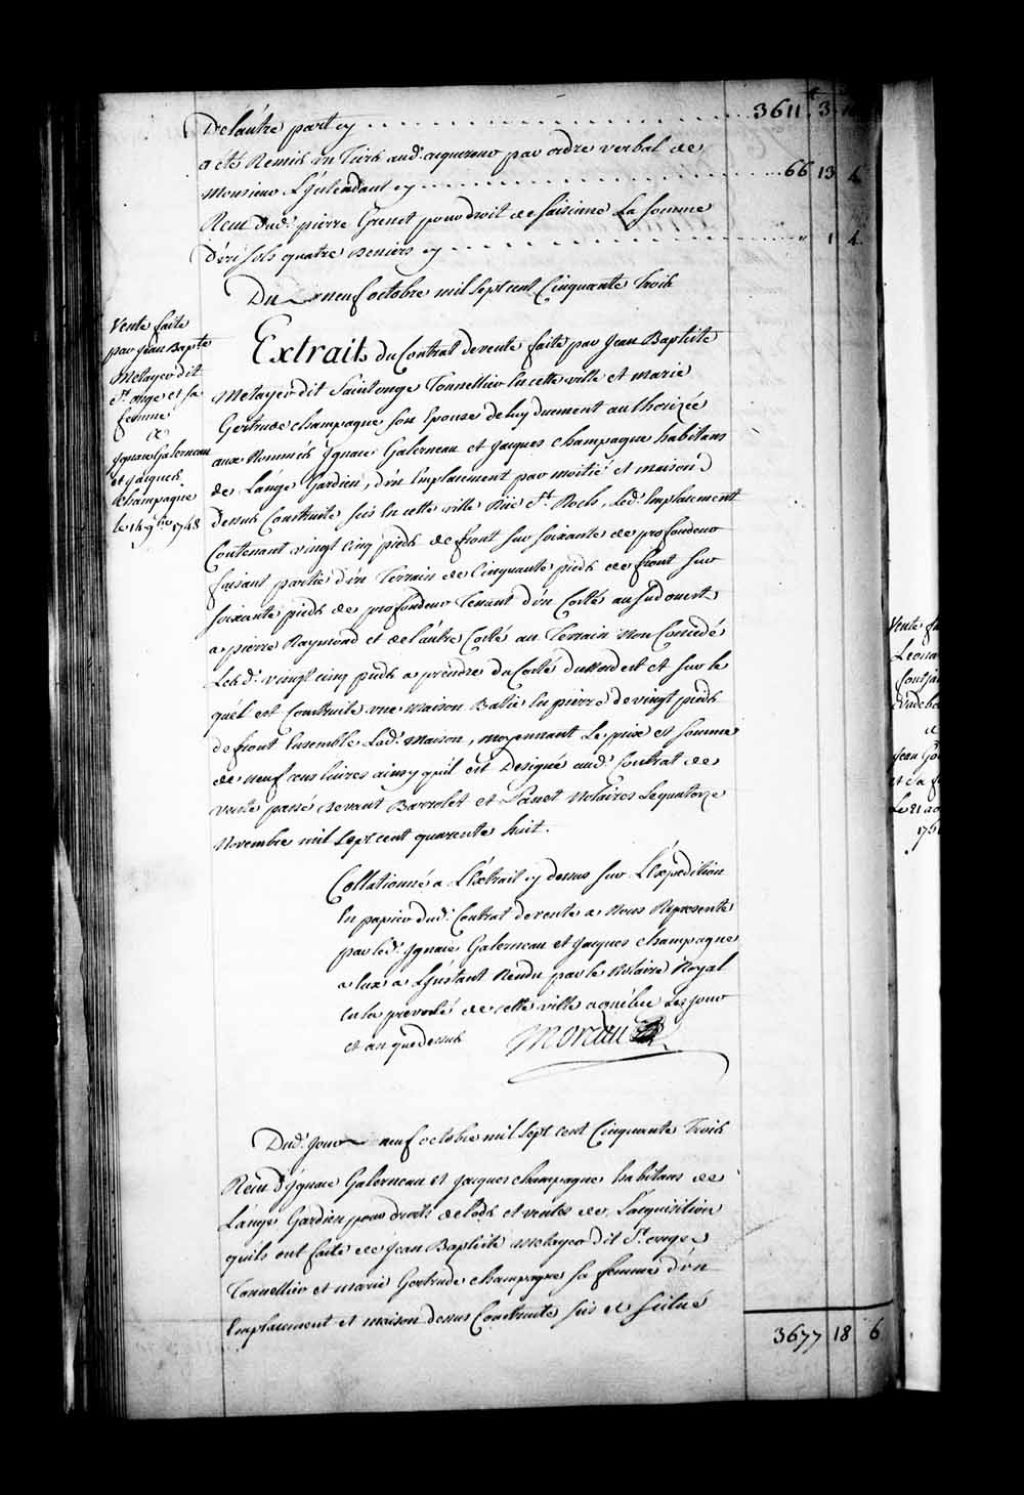 De l'autre part cy . . . . . . . . 3611 3
a eté Remis un Tiers aud. acquereur par ordre verbal de
Monsieur L'Intendant cy . . . . . . . . 66 13 4
Reçu Dud. pierre Grenet pour droit de saisinne La somme
D'un sols quatre deniers cy . . . . . . . . " 1 4
Du neuf octobre mil sept cent Cinquante Trois
Vente faite
par Jean Bapte
Metayer dit
St. onge et sa
femme
a
Ignace Galerneau
et Jacques
Champagne
le 14 9bre 1748
Extrait du Contrat de vente faite par Jean Baptiste
Metayer dit Saintonge Tonnellier En cette ville et Marie
Gertrude champagne son Epouse de luy duement authorizée
aux Nommés Ignace Galerneau et Jacques champagne habitans
de Lange Gardien, d'un Emplacement par moitié et maison
dessus Construite sis En cette ville Rüe St. Roch, Led. Emplacement
Contenant vingt cinq pieds de front sur soixante de profondeur
faisant partie d'un Terrain de Cinquante pieds de front sur
soixante pieds de profondeur Tenant d'un Costé au sud ouest
a pierre Raymond et de l'autre Costé au Terrain Non Concedé
Lesd. vingt cinq pieds a prendre du Costé du Nord est et sur le
quel est Construite une maison Batie En pierre de vingt pieds
de front Ensemble Lad. Maison, moyennant Le prix et somme
de neuf cens livres ainsy quil est Designé aud. Contrat de
vente passé devant Barrolet et Panet Notaires Le quatorze
Novembre mil sept cent quarente huit.
Collationné a L'Extrait cy dessus sur L'Expedition
En papier dud. Contrat de vente a Nous Representé
par led. Ignace Galerneau et Jacques champagne
a Eux a L'Instant Rendu par le Notaire Royal
En la prevosté de cette ville a quebec Les jour
et an que dessus Moreau
Dud. Jour neuf octobre mil sept cent Cinquante Trois
Reçu D'Ignace Galerneau et Jacques champagne habitans de
Lange Gardien pour droits de lods et ventes de L'acquisition
quils ont faite de Jean Baptiste Metayer dit St. onge
Tonnellier et marie Gertrude champagne sa femme d'un
Emplacement et maison dessus Construite sis et scitué
3677 18 6
Vente
Leona
Jean Go
et sa f
Le 21 ao